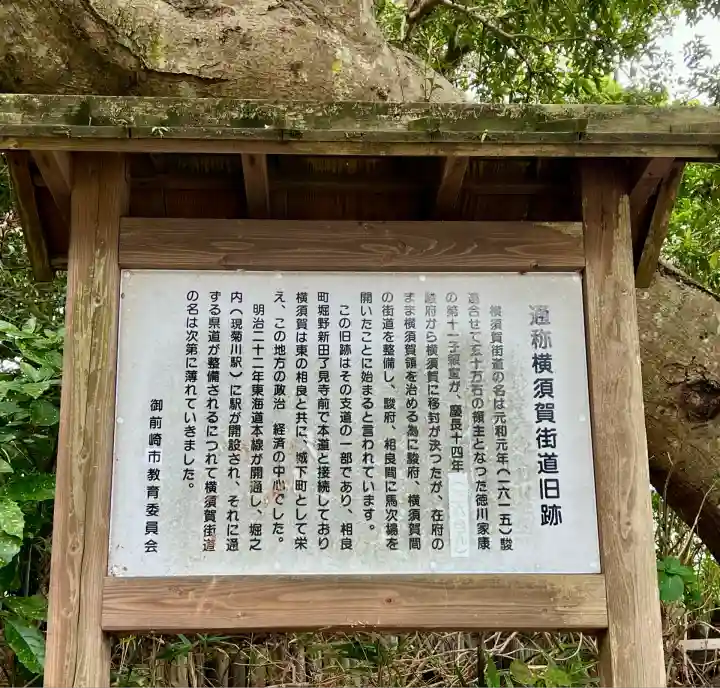 通称横須賀街道旧跡
横須賀街道の名は元和元年(一六一五)駿
遠合せて五十万石の領主となった徳川家康
の第十一子頼宣が、慶長十四年
駿府から横須賀に移封が決ったが、在府の
まま横須賀領を治める為に駿府、横須賀間
の街道を整備し、駿府、相良間に馬次場を
開いたことに始まると言われています。
この旧跡はその支道の一部であり、相良
町堀野新田了見寺前で本道と接続しており
横須賀は東の相良と共に、城下町として栄
え、この地方の政治 経済の中心でした。
明治二十二年東海道本線が開通し、堀之
内(現菊川駅)に駅が開設され、それに通
ずる県道が整備されるにつれて横須賀街道
の名は次第に薄れていきました。
御前崎市教育委員会